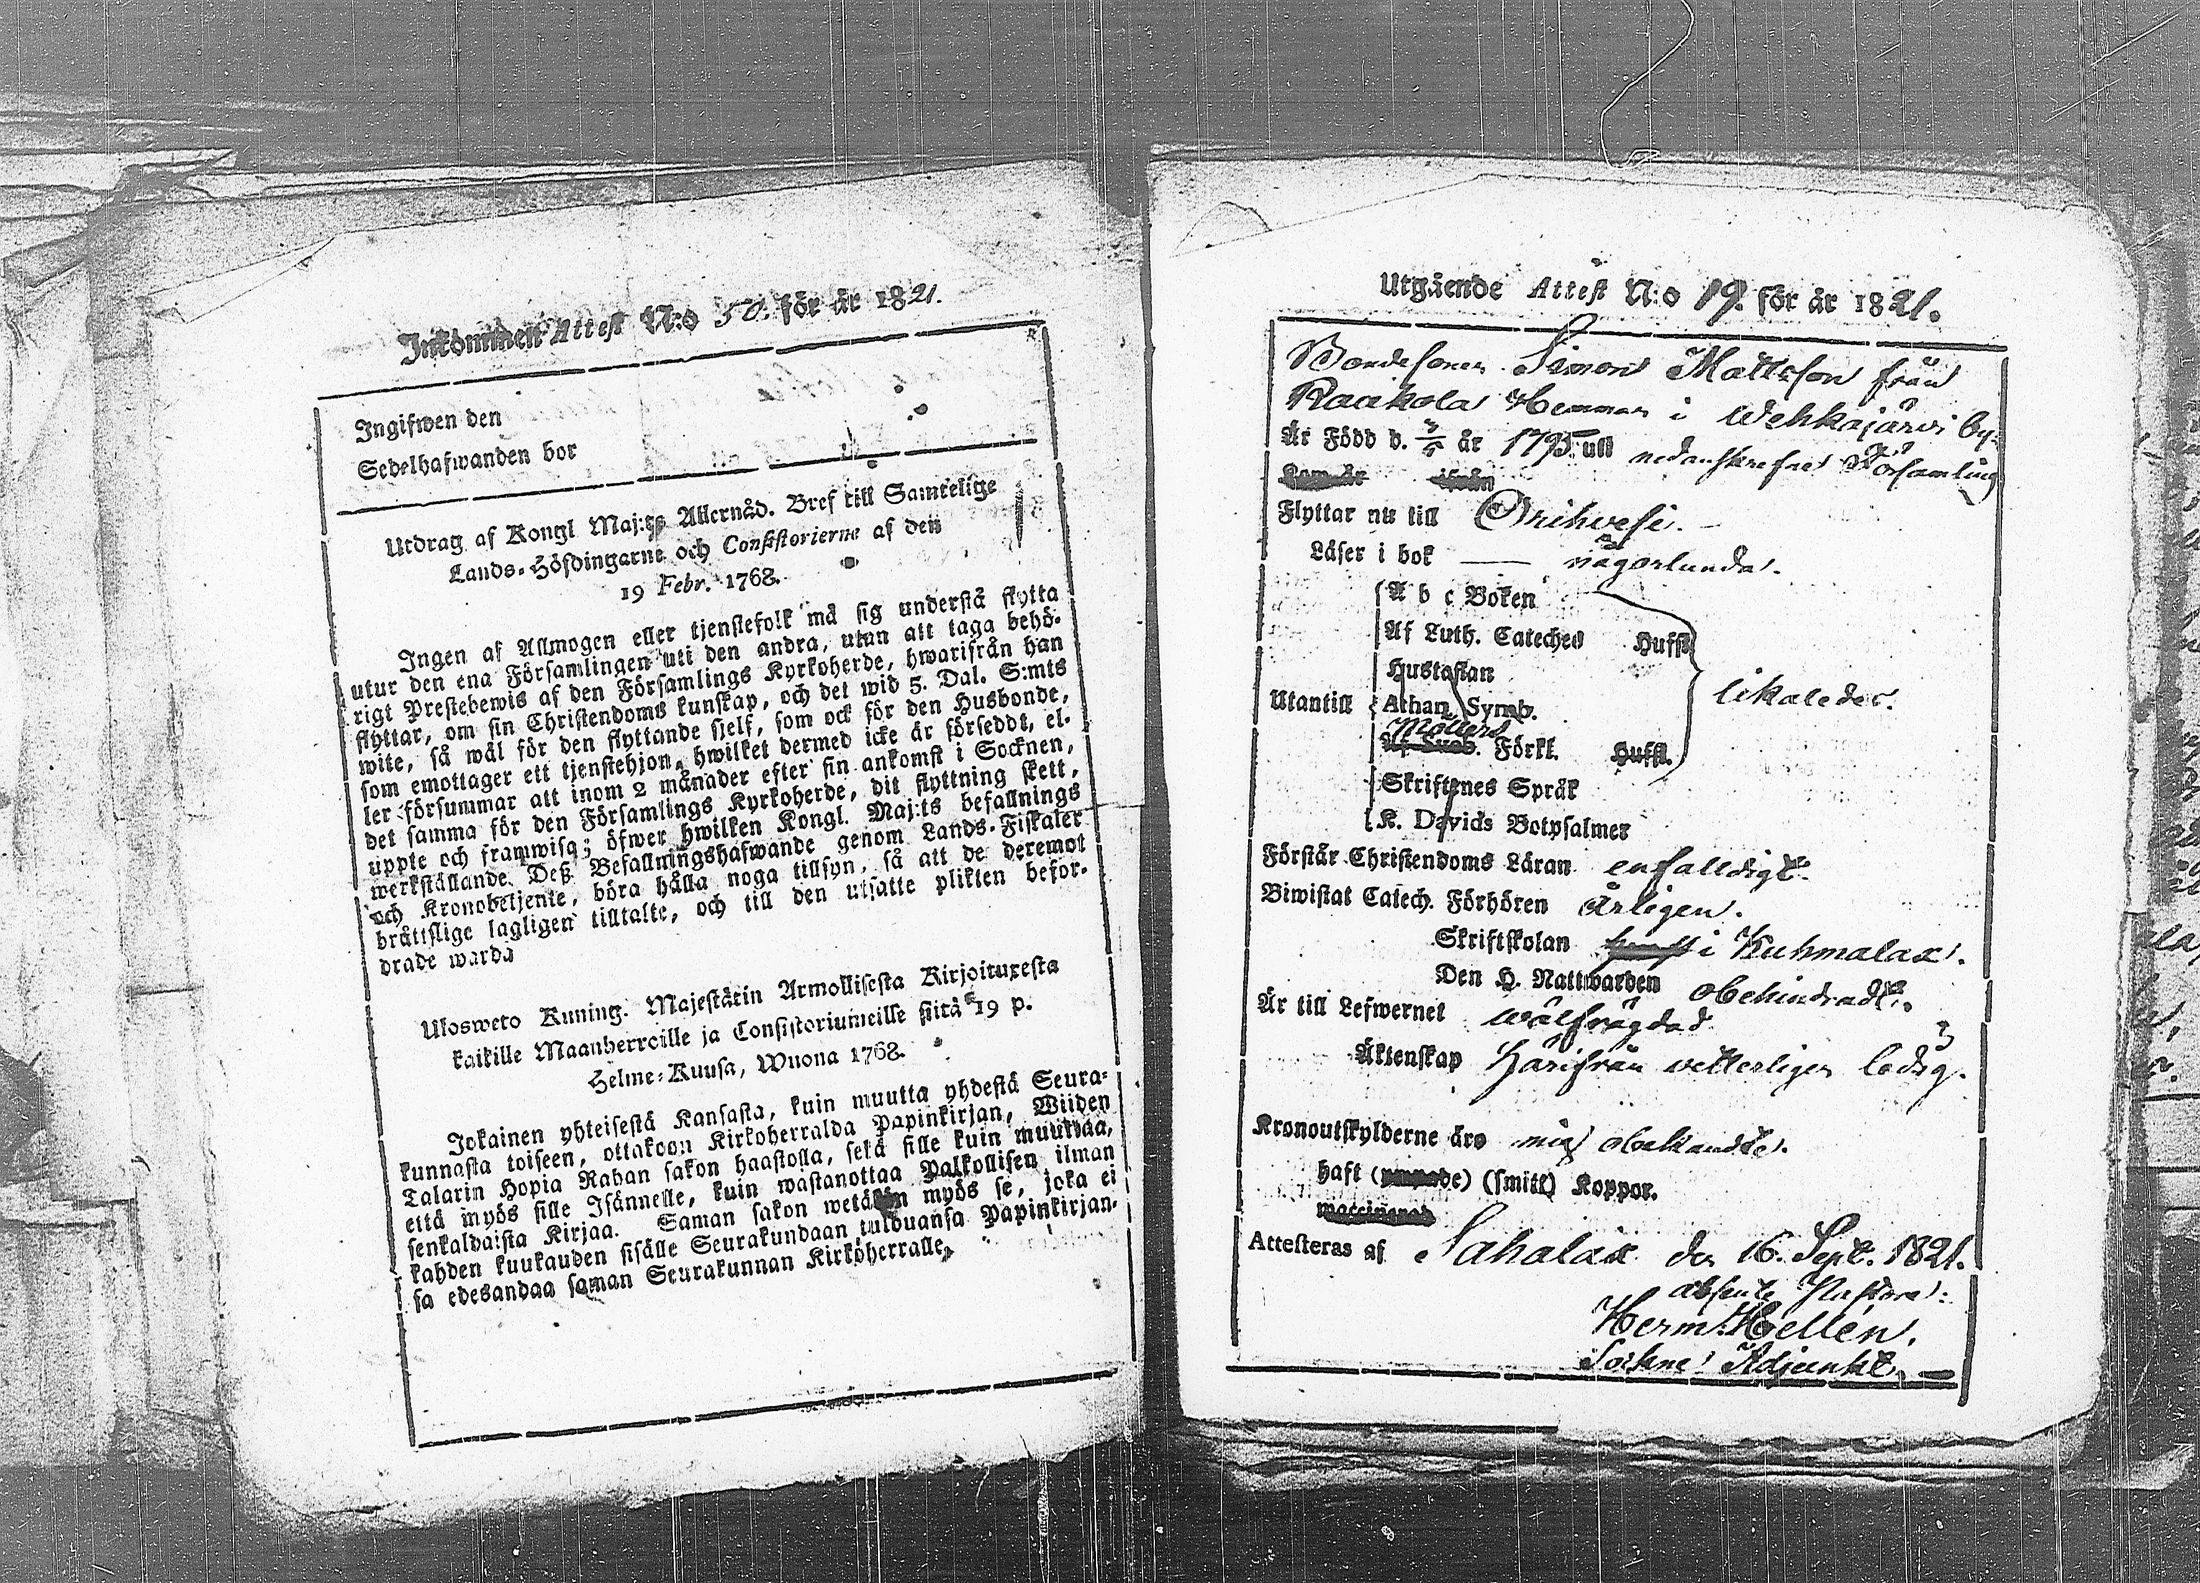 Inkommen Attest N:o 50. för år 1821.
Ingifwen den
Sedelhafwanden bor
Utdrag af Kongl Maj:ts Allernåd. Bref till Samtelige
Lands-Höfdingarne och Consistorierne af den
19 Febr. 1768.
Ingen af Allmogen eller tjenstefolk må sig understå flytta
utur den ena Församlingen uti den andra, utan att taga behö-
rigt Prestebewis af den Församlings Kyrkoherde, hwarifrån han
flyttar, om sin Christendoms kunskap, och det wid 5. Dal. S:mts
wite, så wäl för den flyttande sjelf, som ock för den Husbonde,
som emottager ett tjenstehjon, hwilket dermed icke är försedt, el-
ler försummar att inom 2 månader efter sin ankomst i Socknen,
det samma för den Församlings Kyrkoherde, dit flyttning skett,
uppte och framwisa; öfwer hwilken Kongl. Maj:ts befallnings
werkställande Deß Befallningshafwande genom Lands-Fiskaler
och Kronobetjente, böra hålla noga tillsyn, så att de deremot
bråttslige lagligen tilltalte, och till den utsatte plikten befor-
drade warda
Ulosweto Kuning. Majestätin Armollisesta Kirjoituxesta
kaikille Maanherroille ja Consistoriumeille siitä 19 p.
Helme-Kuusa, Wuona 1768.
Jokainen yhteisestä Kansasta, kuin muutta yhdestä Seura-
kunnasta toiseen, ottakoon Kirkoherralda Papinkirjan, Wiiden
Talarin Hopia Rahan sakon haastolla, sekä sille kuin muuttaa,
että myös sille Isännelle, kuin wastanottaa Palkollisen ilman
senkaldaista Kirjaa. Saman sakon wetäkön myös se, joka ei
kahden kuukauden sisälle Seurakundaan tulduansa Papinkirjan-
sa edesandaa saman Seurakunnan Kirkoherralle.
Utgående Attest N:o 19. för år 1821.
Bondesonen Simon Mattsson från
Raukola Hemman i Wehkajärvi by
Är Född d. år 1795 uti nedanskrefne Församling
Kom år ifrån
Flyttar nu till Orihvesi.
Läser i bok — någorlunda.
A b c Boken
Af Luth. Cateches Hufst.
Hustaflan
Utantill Athan. Symb. likaledes.
Möllers
Förkl. Hufst.
Skriftenes Språk
K. Davids Botpsalmer
Förstår Christendoms Läran enfalldigt.
Biwistat Catech. Förhören Årligen.
Skriftskolan i Kuhmalax.
Den H. Nattwarden obehindradt.
Är till Lefwernet wälfrägdad
Äktenskap Härifrån vetterligen ledig.
Kronoutskylderne äro mig obekandte.
haft (ympade) (smitt) Koppor.
waccinerad
Attesteras af Sahalax den 16. Sept. 1821.
absente Pastore:
Herm: Hellén.
Sockne Adjunkt.